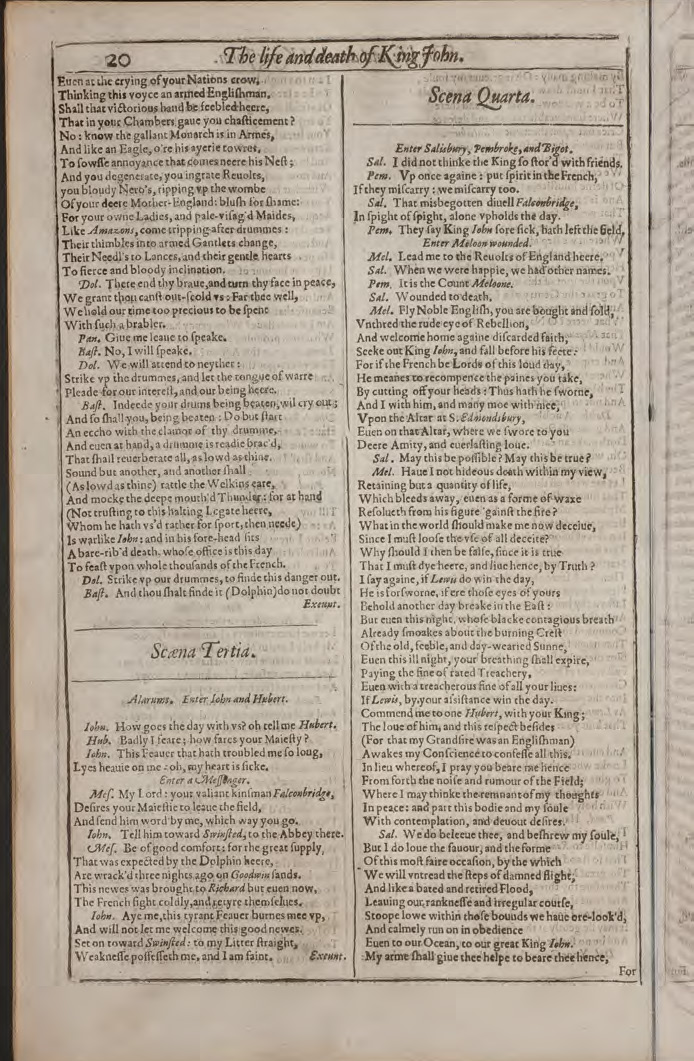 20
The life and death of King John.
Euen at the crying of your Nations crow,
Thinking this voyce an armed Engliſhman.
Shall that victorious hand be feebled heere,
That in your Chambers gaue you chaſticement?
No: know the gallant Monarch is in Armes,
And like an Eagle, o're his ayerie towres,
To ſowſſe annoyance that comes neere his Neſt;
And you degenerate, you ingrate Reuolts,
you bloudy Nero's, ripping vp the wombe
Of your deere Mother-England: bluſh for ſhame:
For your owne Ladies, and pale-viſag'd Maides,
Like Amazons, come tripping after drummes:
Their thimbles into armed Gantlets change,
Their Needl's to Lances, and their gentle hearts
To fierce and bloody inclination.
Dol. There end thy braue, and turn thy face in peace,
We grant thou canſt out-ſcold vs: Far thee well,
We hold our time too precious to be ſpent
With ſuch a brabler.
Pan. Giue me leaue to ſpeake.
Baſt. No, I will ſpeake.
Dol. We will attend to neyther:
Strike vp the drummes, and let the tongue of warre
Pleade for our intereſt, and our being heere.
Baſt. Indeede your drums being beaten, wil cry out;
And ſo ſhall you, being beaten: Do but ſtart
An eccho with the clamor of thy drumme,
And euen at hand, a drumme is readie brac'd,
That ſhall reuerberate all, as lowd as thine.
Sound but another, and another ſhall
(As lowd as thine) rattle the Welkins eare,
And mocke the deepe mouth'd Thunder: for at hand
(Not truſting to this halting Legate heere,
Whom he hath vs'd rather for ſport, then neede)
Is warlike Iohn: and in his fore-head ſits
A bare-rib'd death, whoſe office is this day
To feaſt vpon whole thouſands of the French.
Dol. Strike vp our drummes, to finde this danger out.
Baſt. And thou ſhalt finde it (Dolphin) do not doubt
Exeunt.
Scæna Tertia.
Alarums. Enter Iohn and Hubert.
Iohn. How goes the day with vs? oh tell me Hubert.
Hub. Badly I feare; how fares your Maieſty?
Iohn. This Feauer that hath troubled me ſo long,
Lyes heauie on me: oh, my heart is ſicke.
Enter a Meſſenger.
Meſ. My Lord: your valiant kinſman Falconbridge,
Deſires your Maieſtie to leaue the field,
And ſend him word by me, which way you go.
Iohn. Tell him toward Swinſted, to the Abbey there.
Meſ. Be of good comfort: for the great ſupply
That was expected by the Dolphin heere,
Are wrack'd three nights ago on Goodwin ſands.
This newes was brought to Richard but euen now,
The French fight coldly, and retyre themſelues.
Iohn. Aye me, this tyrant Feauer burnes mee vp,
And will not let me welcome this good newes.
Set on toward Swinſted: to my Litter ſtraight,
Weakneſſe poſſeſſeth me, and I am faint. Exeunt.
Scena Quarta.
Enter Salisbury, Pembroke, and Bigot.
Sal. I did not thinke the King ſo ſtor'd with friends.
Pem. Vp once againe: put ſpirit in the French,
If they miſcarry: we miſcarry too.
Sal. That misbegotten diuell Falconbridge,
In ſpight of ſpight, alone vpholds the day.
Pem. They ſay King Iohn ſore ſick, hath left the field.
Enter Meloon wounded.
Mel. Lead me to the Reuolts of England heere.
Sal. When we were happie, we had other names.
Pem. It is the Count Meloone.
Sal. Wounded to death.
Mel. Fly Noble Engliſh, you are bought and ſold,
Vnthred the rude eye of Rebellion,
And welcome home againe diſcarded faith,
Seeke out King Iohn, and fall before his feete:
For if the French be Lords of this loud day,
He meanes to recompence the paines you take,
By cutting off your heads: Thus hath he ſworne,
And I with him, and many moe with mee,
Vpon the Altar at S. Edmondsbury,
Euen on that Altar, where we ſwore to you
Deere Amity, and euerlaſting loue.
Sal. May this be poſſible? May this be true?
Mel. Haue I not hideous death within my view,
Retaining but a quantity of life,
Which bleeds away, euen as a forme of waxe
Reſolueth from his figure 'gainſt the fire?
What in the world ſhould make me now deceiue,
Since I muſt looſe the vſe of all deceite?
Why ſhould I then be falſe, ſince it is true
That I muſt dye heere, and liue hence, by Truth?
I ſay againe, if Lewis do win the day,
He is forſworne, if ere thoſe eyes of yours
Behold another day breake in the Eaſt:
But euen this night, whoſe blacke contagious breath
Already ſmoakes about the burning Creſt
Of the old, feeble, and day-wearied Sunne,
Euen this ill night, your breathing ſhall expire,
Paying the fine of rated Treachery,
Euen with a treacherous fine of all your liues:
If Lewis, by your aſſiſtance win the day.
Commend me to one Hubert, with your King;
The loue of him, and this reſpect beſides
(For that my Grandſire was an Engliſhman)
Awakes my Conſcience to confeſſe all this.
In lieu whereof, I pray you beare me hence
From forth the noiſe and rumour of the Field;
Where I may thinke the remnant of my thoughts
In peace: and part this bodie and my ſoule
With contemplation, and deuout deſires.
Sal. We do beleeue thee, and beſhrew my ſoule,
But I do loue the fauour, and the forme
Of this moſt faire occaſion, by the which
We will vntread the ſteps of damned flight,
And like a bated and retired Flood,
Leauing our rankneſſe and irregular courſe,
Stoope lowe within thoſe bounds we haue ore-look'd,
And calmely run on in obedience
Euen to our Ocean, to our great King Iohn.
My arme ſhall giue thee helpe to beare thee hence,
For